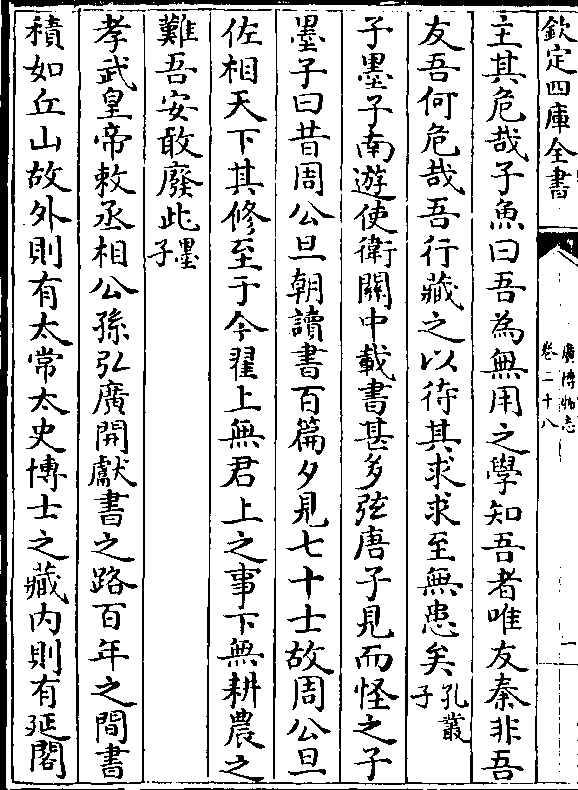 欽定四庫全書
廣博物志
卷二十八
一
主其危哉子魚曰吾為無用之學知吾者唯友秦非吾
友吾何危哉吾行藏之以待其求求至無患矣孔叢子
子墨子南遊使衛關中載書甚多弦唐子見而怪之子
墨子曰昔周公旦朝讀書百篇夕見七十士故周公旦
佐相天下其修至于今翟上無君上之事下無耕農之
難吾安敢廢此墨子
孝武皇帝敕丞相公孫弘廣開獻書之路百年之間書
積如丘山故外則有太常太史博士之藏内則有延閣